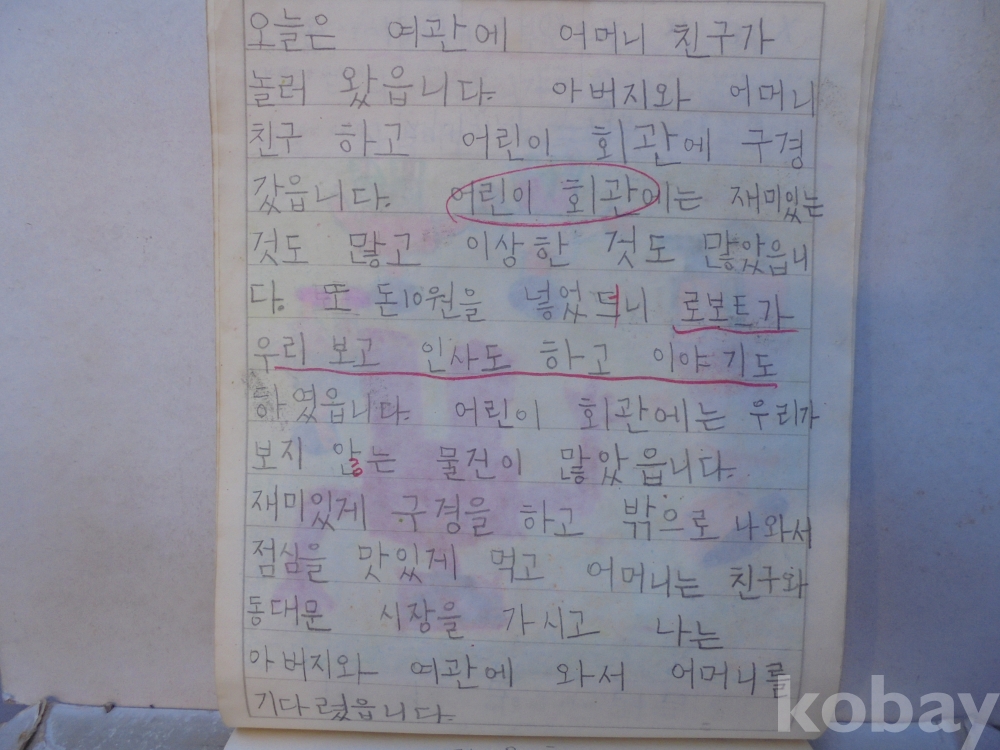 오늘은 여관에 어머니 친구가
놀러 왔읍니다. 아버지와 어머니
친구 하고 어린이 회관에 구경
갔읍니다. 어린이 회관에는 재미있는
것도 많고 이상한 것도 많았읍니
다. 또 돈10원을 넣었더니 로보트가
우리 보고 인사도 하고 이야기도
하였읍니다. 어린이 회관에는 우리가
보지 않는 물건이 많았읍니다.
재미있게 구경을 하고 밖으로 나와서
점심을 맛있게 먹고 어머니는 친구와
동대문 시장을 가시고 나는
아버지와 여관에 와서 어머니를
기다렸읍니다.
kobay